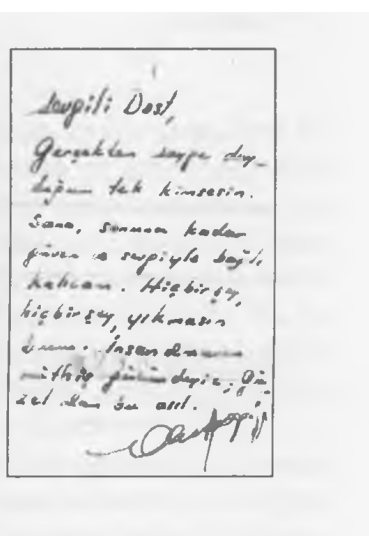 Sevgili Dost,
Gerçekten sevgi duy-
duğum tek kimsesin.
Sana, sonuna kadar
güven ve sevgiyle bağlı
kalıcam. Hiçbirşey,
hiçbirşey yıkmasın
bunu. İnsandının
müthiş deyiz. Gü-
zel olan bu asıl.